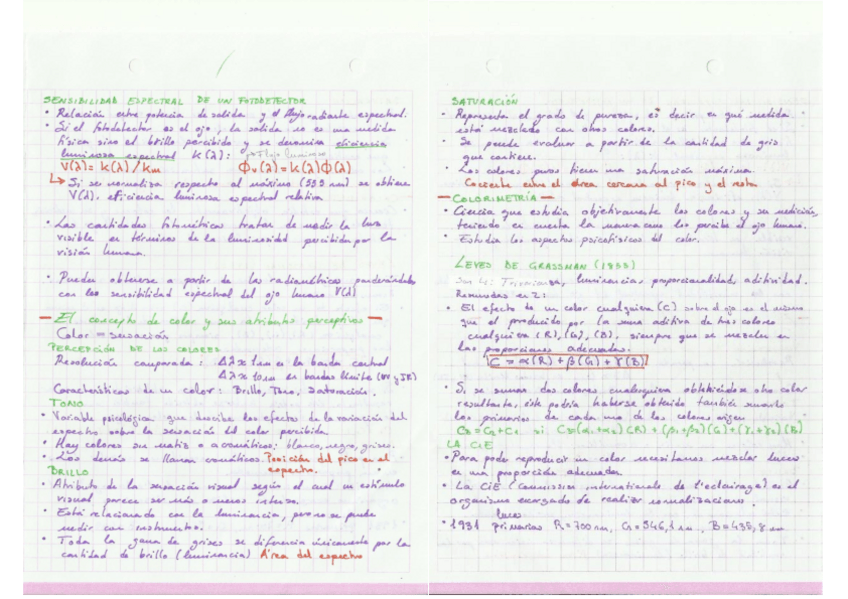 SENSIBILIDAD ESPECTRAL DE UN FOTODETECTOR
• Relación entre potencia de salida y el flujo radiante espectral.
• Si el fotodetector es el ojo, la salida no es una medida
física sino el brillo percibido y se denomina eficiencia
luminosa espectral K(λ): Flujo luminoso
V(λ) = K(λ)/Km Φv(λ) = K(λ)Φ(λ)
↳ Si se normaliza respecto al máximo (555 nm) se obtiene
V(λ), eficiencia luminosa espectral relativa
• Las cantidades fotométricas tratan de medir la luz
visible en términos de la luminosidad percibida por la
visión humana.
• Pueden obtenerse a partir de las radiométricas ponderándolas
con la sensibilidad espectral del ojo humano V(λ)
— El concepto de color y sus atributos perceptivos —
Color = sensación
PERCEPCIÓN DE LOS COLORES
Resolución comparada: Δλ≈1nm en la banda central
Δλ≈10nm en bandas límite (UV y IR)
Características de un color: Brillo, Tono, Saturación.
TONO
• Variable psicológica que describe los efectos de la variación del
espectro sobre la sensación del color percibida
• Hay colores sin matiz o acromáticos: blanco, negro, grises.
• Los demás se llaman cromáticos. Posición del pico en el
espectro.
BRILLO
• Atributo de la sensación visual según el cual un estímulo
visual parece ser más o menos intenso.
• Está relacionado con la luminancia, pero no se puede
medir con instrumentos.
• Toda la gama de grises se diferencia únicamente por la
cantidad de brillo (luminancia) Área del espectro
SATURACIÓN
• Representa el grado de pureza, es decir en qué medida
está mezclado con otros colores.
• Se puede evaluar a partir de la cantidad de gris
que contiene.
• Los colores puros tienen una saturación máxima.
Cociente entre el área cercana al pico y el resto
— COLORIMETRÍA —
• Ciencia que estudia objetivamente los colores y su medición,
teniendo en cuenta la manera como los percibe el ojo humano.
• Estudia los aspectos psicofísicos del color.
LEYES DE GRASSMAN (1853)
Son 4: Trivarianza, luminancias, proporcionalidad, aditividad.
Resumidas en 2:
• El efecto de un color cualquiera (C) sobre el ojo es el mismo
que el producido por la suma aditiva de tres colores
cualquiera (R), (G), (B), siempre que se mezclen en
las proporciones adecuadas.
C = α(R) + β(G) + γ(B)
• Si se suman dos colores cualesquiera obteniéndose otro color
resultante, éste podría haberse obtenido también sumando
los primarios de cada uno de los colores origen
C3 = C2 + C1 si C3 = (α1+α2)(R) + (β1+β2)(G) + (γ1+γ2)(B)
LA CIE
• Para poder reproducir un color necesitamos mezclar luces
en una proporción adecuada.
• La CIE (Commission internationale de l'eclairage) es el
organismo encargado de realizar normalizaciones.
luces
• 1931 primarias R=700nm, G=546,1 nm, B=435,8 nm